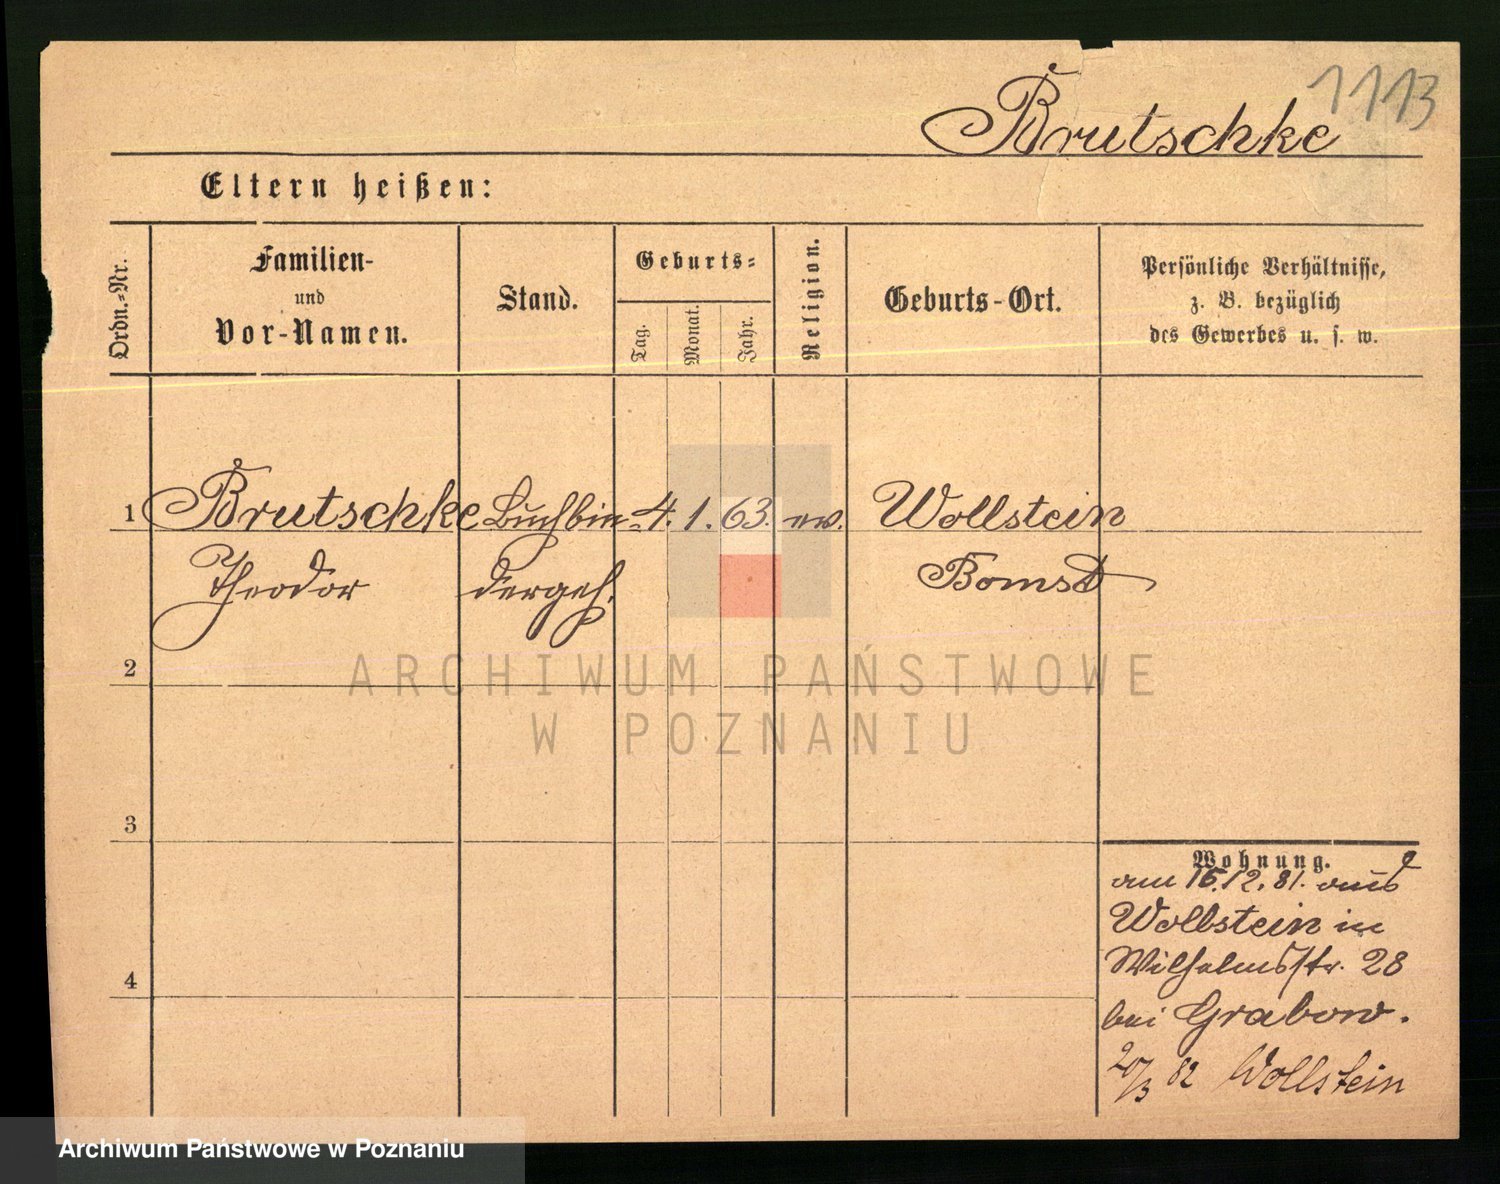 1113
Brutschke
Eltern heißen:
Ordn.-Nr.
Familien-
und
Vor-Namen.
Stand.
Geburts-
Tag.
Monat.
Jahr.
Religion.
Geburts-Ort.
Persönliche Verhältnisse,
z. B. bezüglich
des Gewerbes u. s. w.
1 Brutschke Buchbin- 4. 1. 63. ev. Wollstein
Theodor dergeh. Bomst
2
3
4
Wohnung.
am 15.12.81. aus
Wollstein in
Wilhelmsstr. 28
bei Grabow.
20/3 82 Wollstein
ARCHIWUM PAŃSTWOWE
W POZNANIU
Archiwum Państwowe w Poznaniu